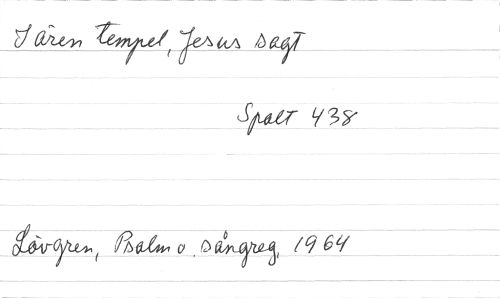 I ären tempel, Jesus sagt
Spalt 438
Lövgren, Psalm o. sångreg. 1964